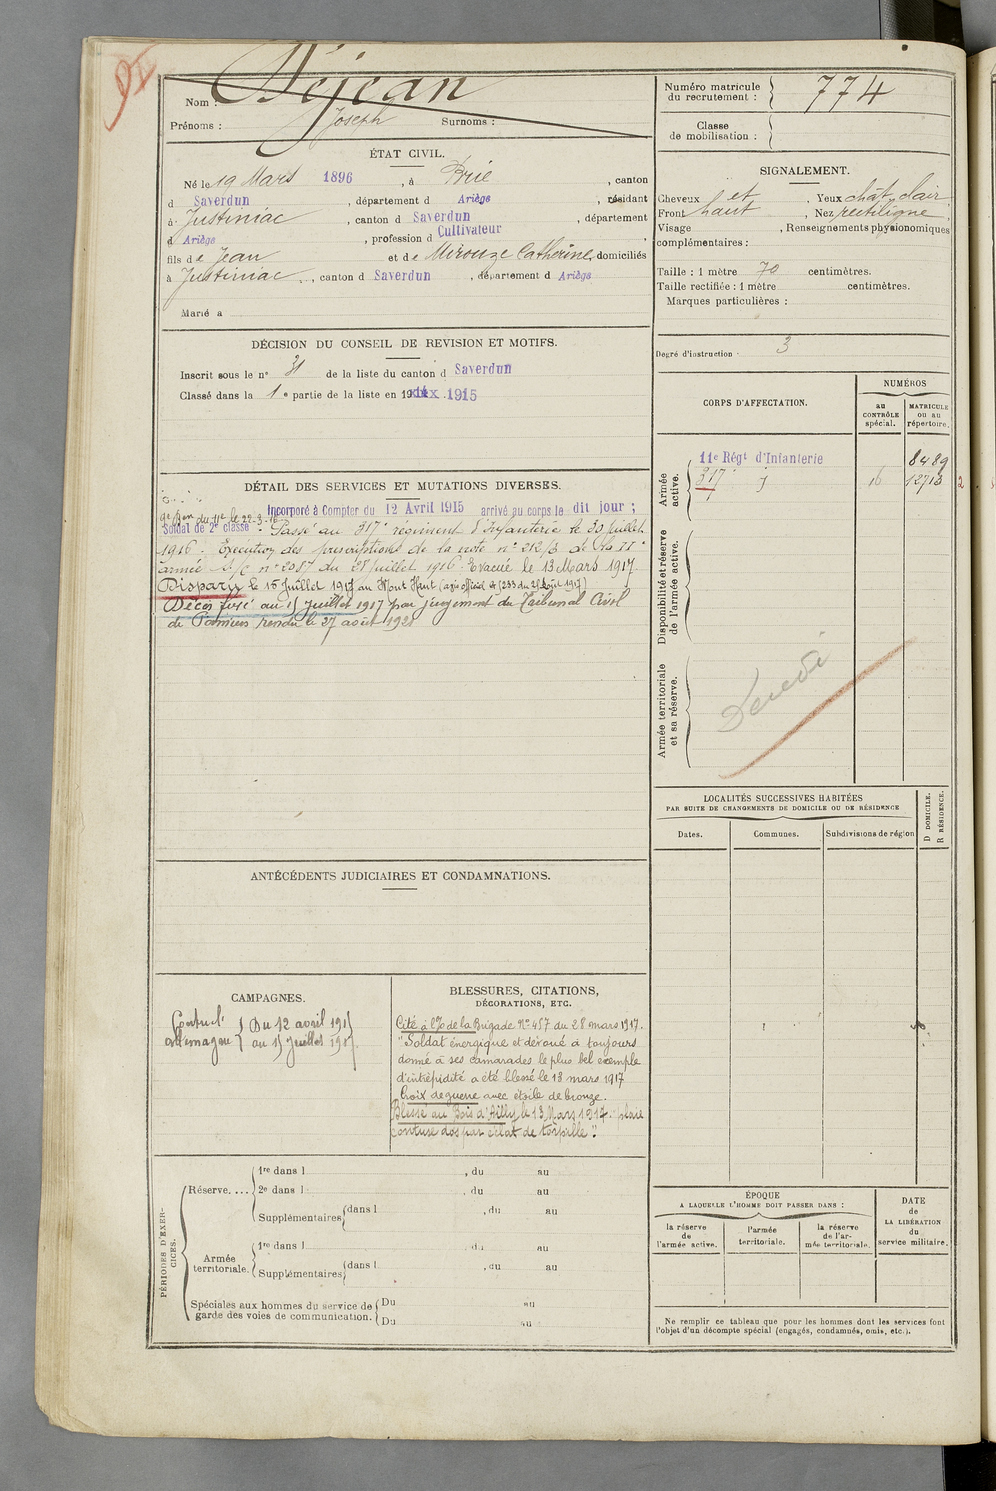 Nom : Déjean
Prénoms : Joseph Surnoms :
ÉTAT CIVIL.
Né le 19 Mars 1896, à Brie, canton
d Saverdun, département d Ariège, résidant
à Justiniac, canton d Saverdun, département
d Ariège, profession d Cultivateur
fils de Jean et de Mirouze Catherine, domiciliés
à Justiniac, canton d Saverdun, département d Ariège
Marié à
DÉCISION DU CONSEIL DE REVISION ET MOTIFS.
Inscrit sous le n° 31 de la liste du canton d Saverdun
Classé dans la 1e partie de la liste en 19 1915
DÉTAIL DES SERVICES ET MUTATIONS DIVERSES.
Incorporé à Compter du 12 Avril 1915 arrivé au corps le dit jour ;
du 11e le 22-3-16
Soldat de 2e classe. Passé au 317e régiment d'infanterie le 20 juillet
1916. Exécution des prescriptions de la note n° 212/3 de la II
armée n° 2087 du 28 juillet 1916. Evacué le 13 Mars 1917.
Disparu le 15 Juillet 1917 au Mont Haut (avis officiel du août 1917)
Décès fixé au 15 juillet 1917 par jugement du Tribunal Civil
de Pamiers rendu le 27 août 192
ANTÉCÉDENTS JUDICIAIRES ET CONDAMNATIONS.
CAMPAGNES.
Contre l' } Du 12 avril 1915
Allemagne } au 15 Juillet 1917
BLESSURES, CITATIONS,
DÉCORATIONS, ETC.
Cité à l'O de la Brigade N° 457 du 28 mars 1917.
"Soldat énergique et dévoué a toujours
donné à ses camarades le plus bel exemple
d'intrépidité a été blessé le 13 mars 1917
Croix de guerre avec étoile de bronze.
Blessé au Bois d'Ailly le 13 Mars 1917. plaie
contuse dos par éclat de torpille."
PÉRIODES D'EXERCICES.
Réserve. ...
1re dans l , du au
2e dans l , du au
Supplémentaires dans l , du au
Armée territoriale.
1re dans l , du au
Supplémentaires dans l , du au
Spéciales aux hommes du service de garde des voies de communication.
Du au
Du au
Numéro matricule
du recrutement : 774
Classe
de mobilisation :
SIGNALEMENT.
Cheveux et, Yeux chât clair
Front haut, Nez rectiligne
Visage , Renseignements physionomiques
complémentaires :
Taille : 1 mètre 70 centimètres.
Taille rectifiée : 1 mètre centimètres.
Marques particulières :
Degré d'instruction 3
CORPS D'AFFECTATION.
NUMÉROS
au CONTRÔLE spécial.
MATRICULE ou au répertoire.
Armée active.
11e Régt d'Infanterie 8489
317 16 12713
Disponibilité et réserve de l'armée active.
Armée territoriale et sa réserve.
LOCALITÉS SUCCESSIVES HABITÉES
PAR SUITE DE CHANGEMENTS DE DOMICILE OU DE RÉSIDENCE
Dates. Communes. Subdivisions de région
D DOMICILE.
R RÉSIDENCE.
ÉPOQUE
A LAQUELLE L'HOMME DOIT PASSER DANS :
la réserve de l'armée active.
l'armée territoriale.
la réserve de l'armée territoriale.
DATE de LA LIBÉRATION du service militaire.
Ne remplir ce tableau que pour les hommes dont les services font
l'objet d'un décompte spécial (engagés, condamnés, omis, etc.).